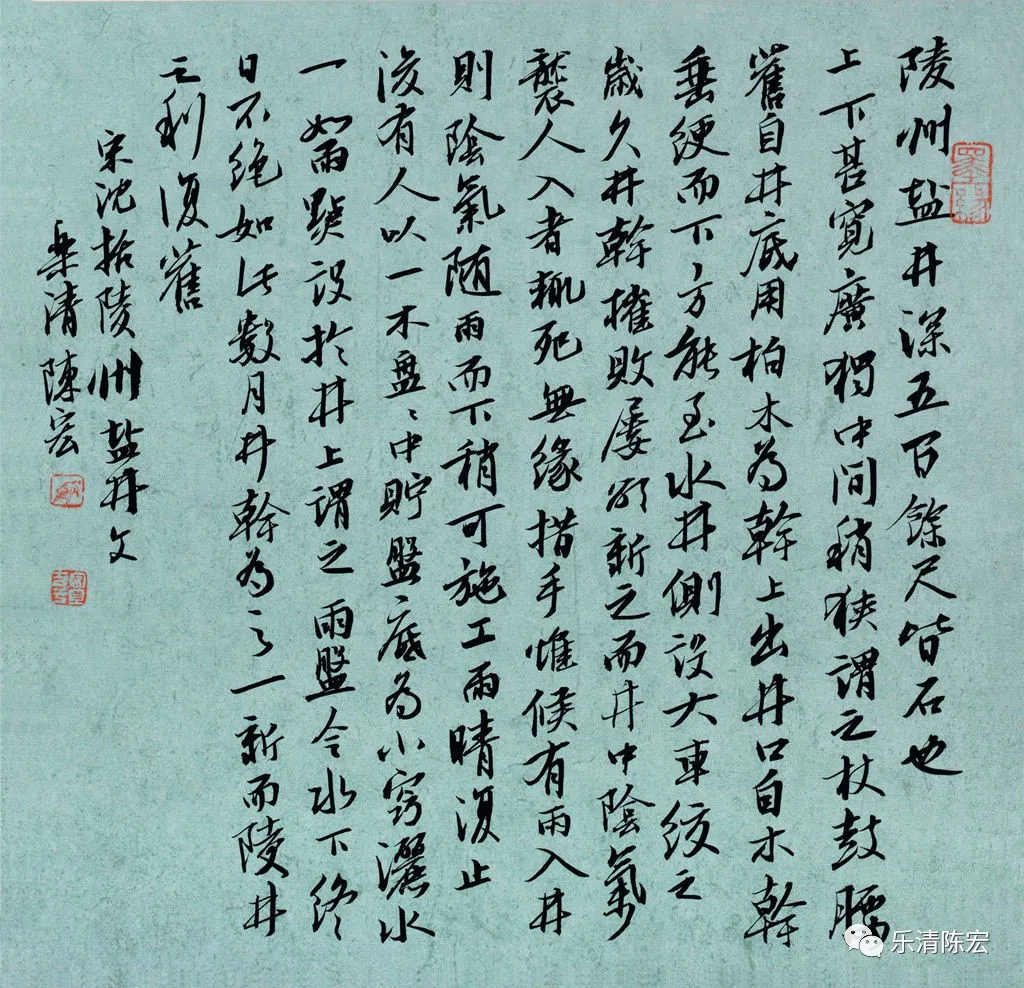 陵州盐井深五百餘尺皆石也
上下甚寬廣獨中间稍狹謂之杖鼓腰
舊自井底用柏木為幹上出井口自木幹
垂綆而下方能至水井側設大車绞之
歲久井幹摧敗屡欲新之而井中陰氣
襲人入者輒死無緣措手惟候有雨入井
則陰氣随雨而下稍可施工雨晴復止
後有人以一木盘〻中貯盤底為小竅灑水
一如雨點設於井上謂之雨盤令水下终
日不绝如此數月井幹為之一新而陵井
之利復舊
宋沈括陵州盐井文
樂清陳宏
乐清陈宏